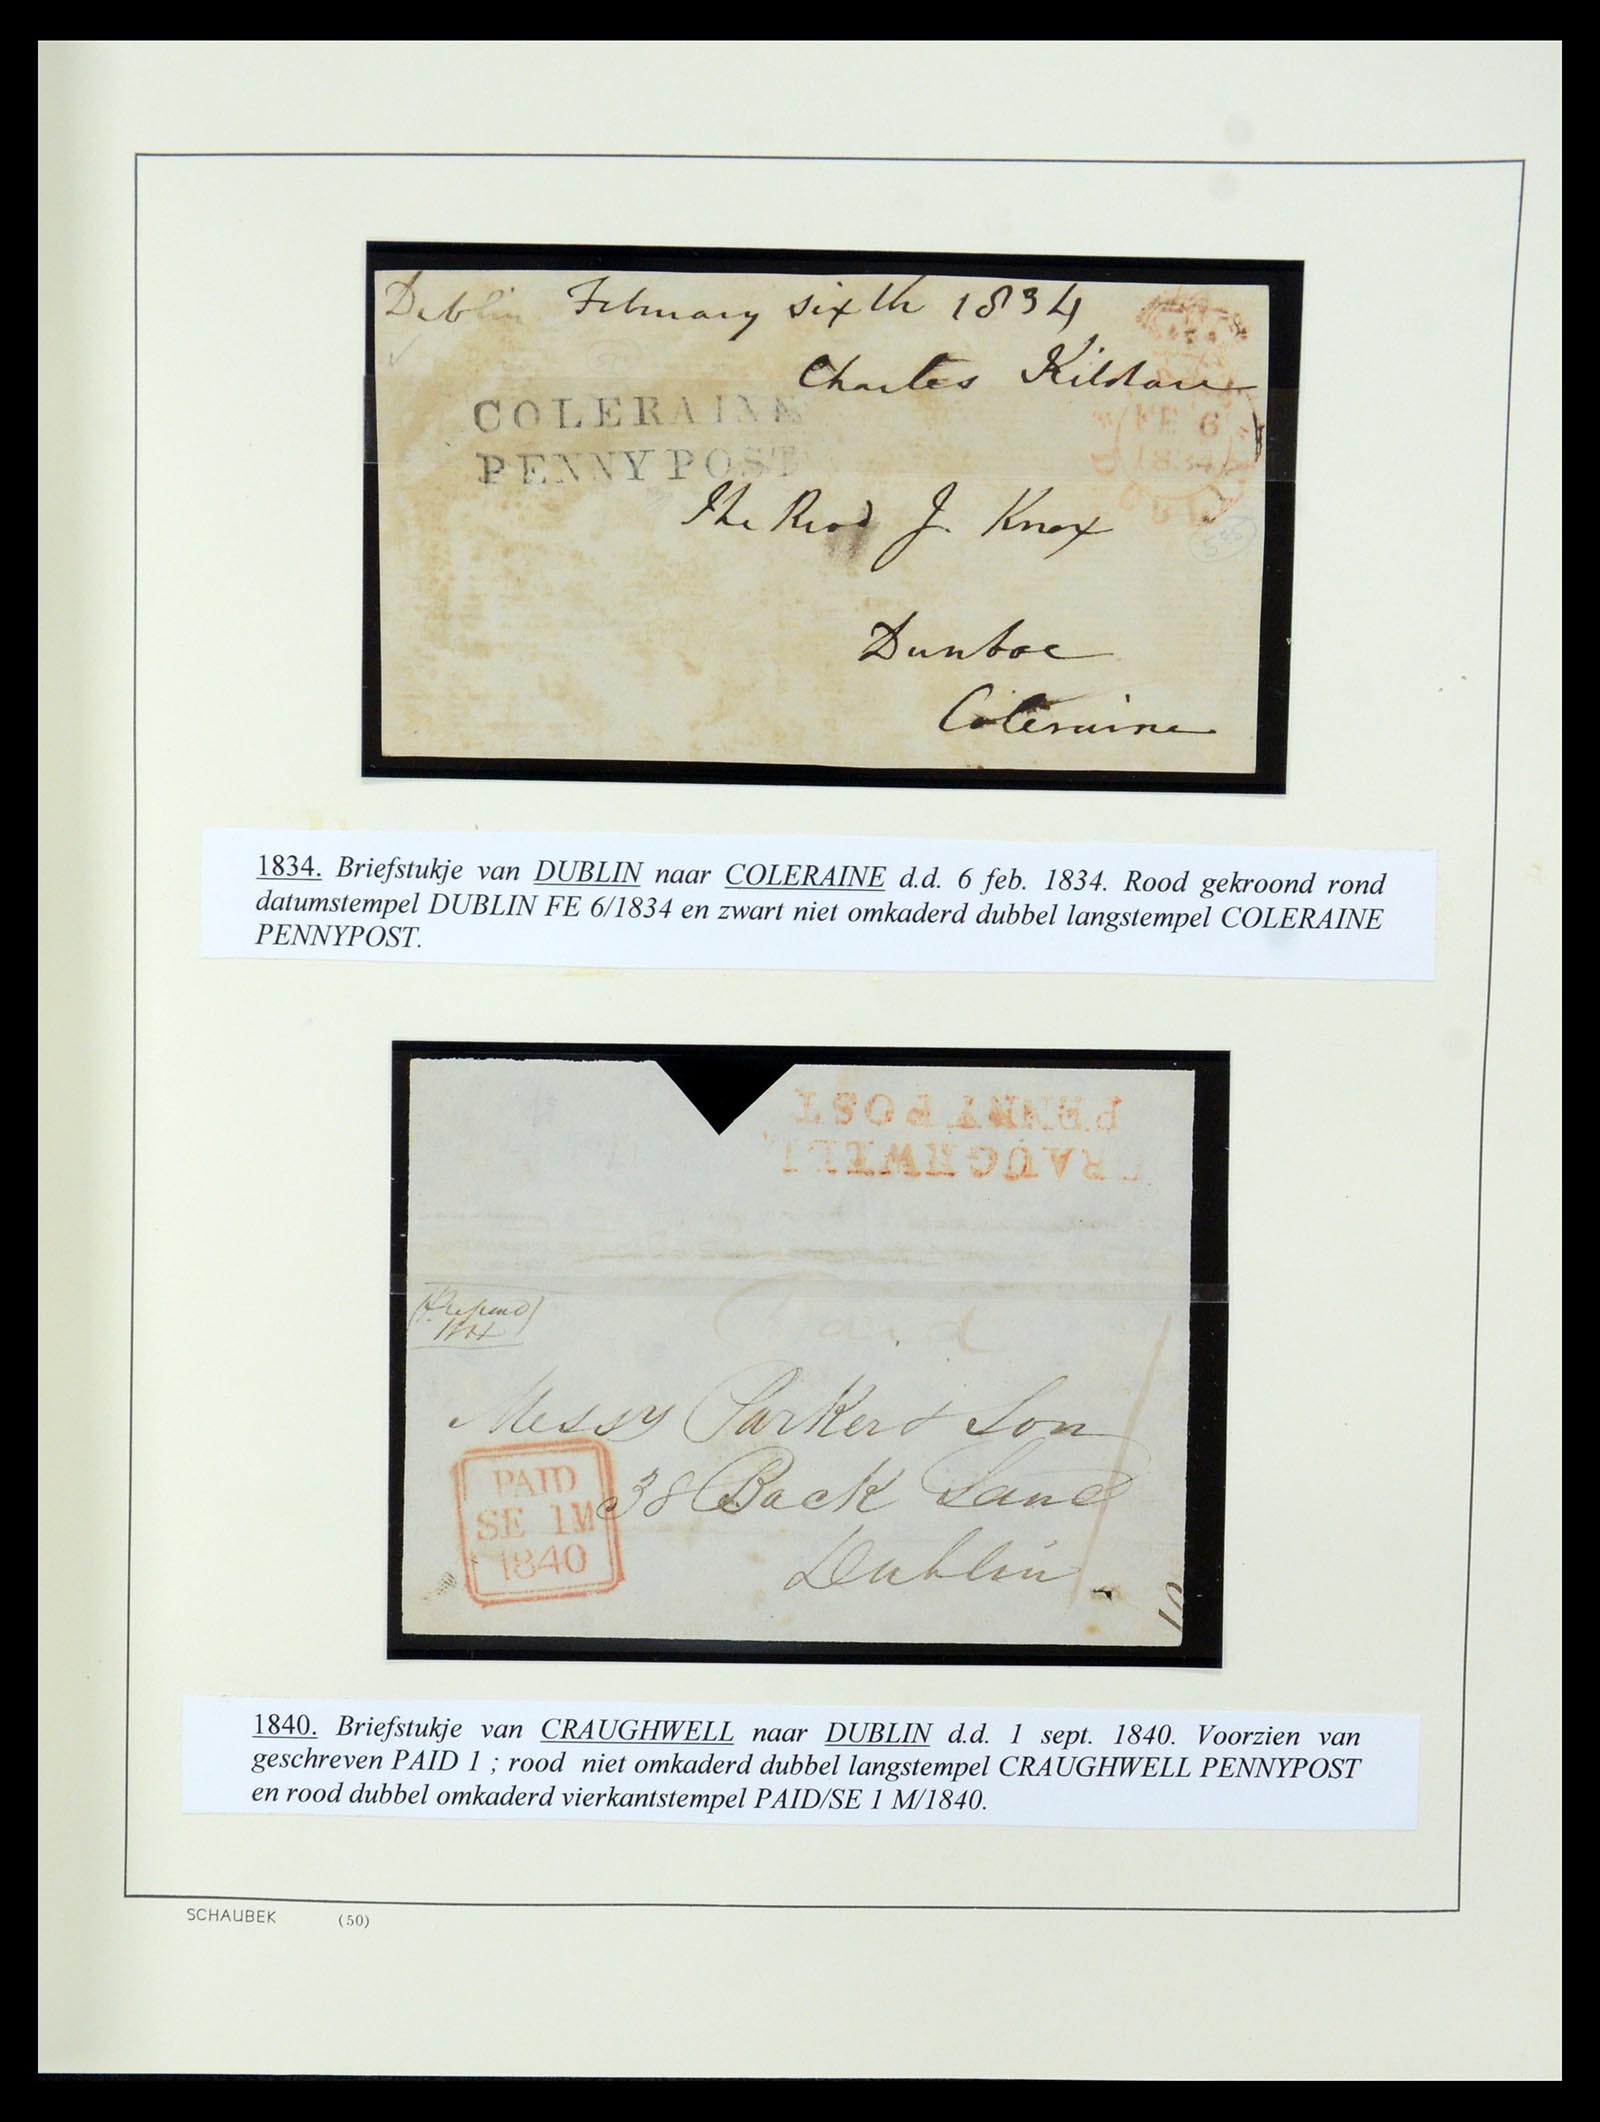 Dublin February sixth 1834
Charles Kildare
COLERAINE
PENNY POST
FE 6
1834
The Revd J. Knox
Dunboe
Coleraine
1834. Briefstukje van DUBLIN naar COLERAINE d.d. 6 feb. 1834. Rood gekroond rond
datumstempel DUBLIN FE 6/1834 en zwart niet omkaderd dubbel langstempel COLERAINE
PENNYPOST.
PENNY POST
CRAUGHWELL
Paid
1
Messrs Parker & Son
38 Back Lane
Dublin
PAID
SE 1M
1840
10
1840. Briefstukje van CRAUGHWELL naar DUBLIN d.d. 1 sept. 1840. Voorzien van
geschreven PAID 1 ; rood niet omkaderd dubbel langstempel CRAUGHWELL PENNYPOST
en rood dubbel omkaderd vierkantstempel PAID/SE 1 M/1840.
SCHAUBEK (50)